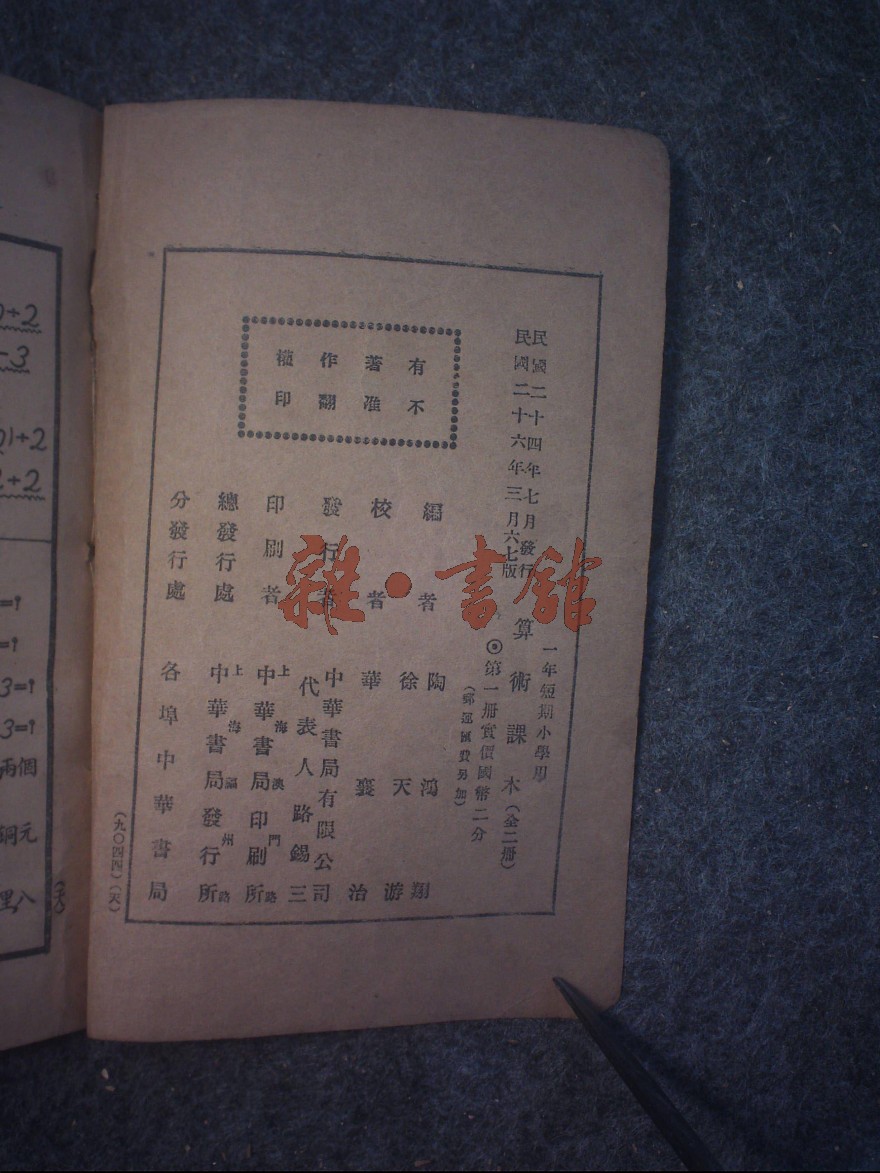 民國二十四年七月發行
民國二十六年三月六七版
有不
著准
作翻
權印
一年短期小學用
算術課本(全二冊)
◎第一冊實價國幣二分
(郵運匯費另加)
編者 陶鴻翔
徐天游
校者 華襄治
發行者 中華書局有限公司
代表人路錫三
印刷者 上海澳門路
中華書局印刷所
總發行處 上海福州路
中華書局發行所
分發行處 各埠中華書局
(九〇四四)(天)
雜·書館
÷2
-3
)÷2
2÷2
=?
=?
3=?
3=?
兩個
銅元
里八